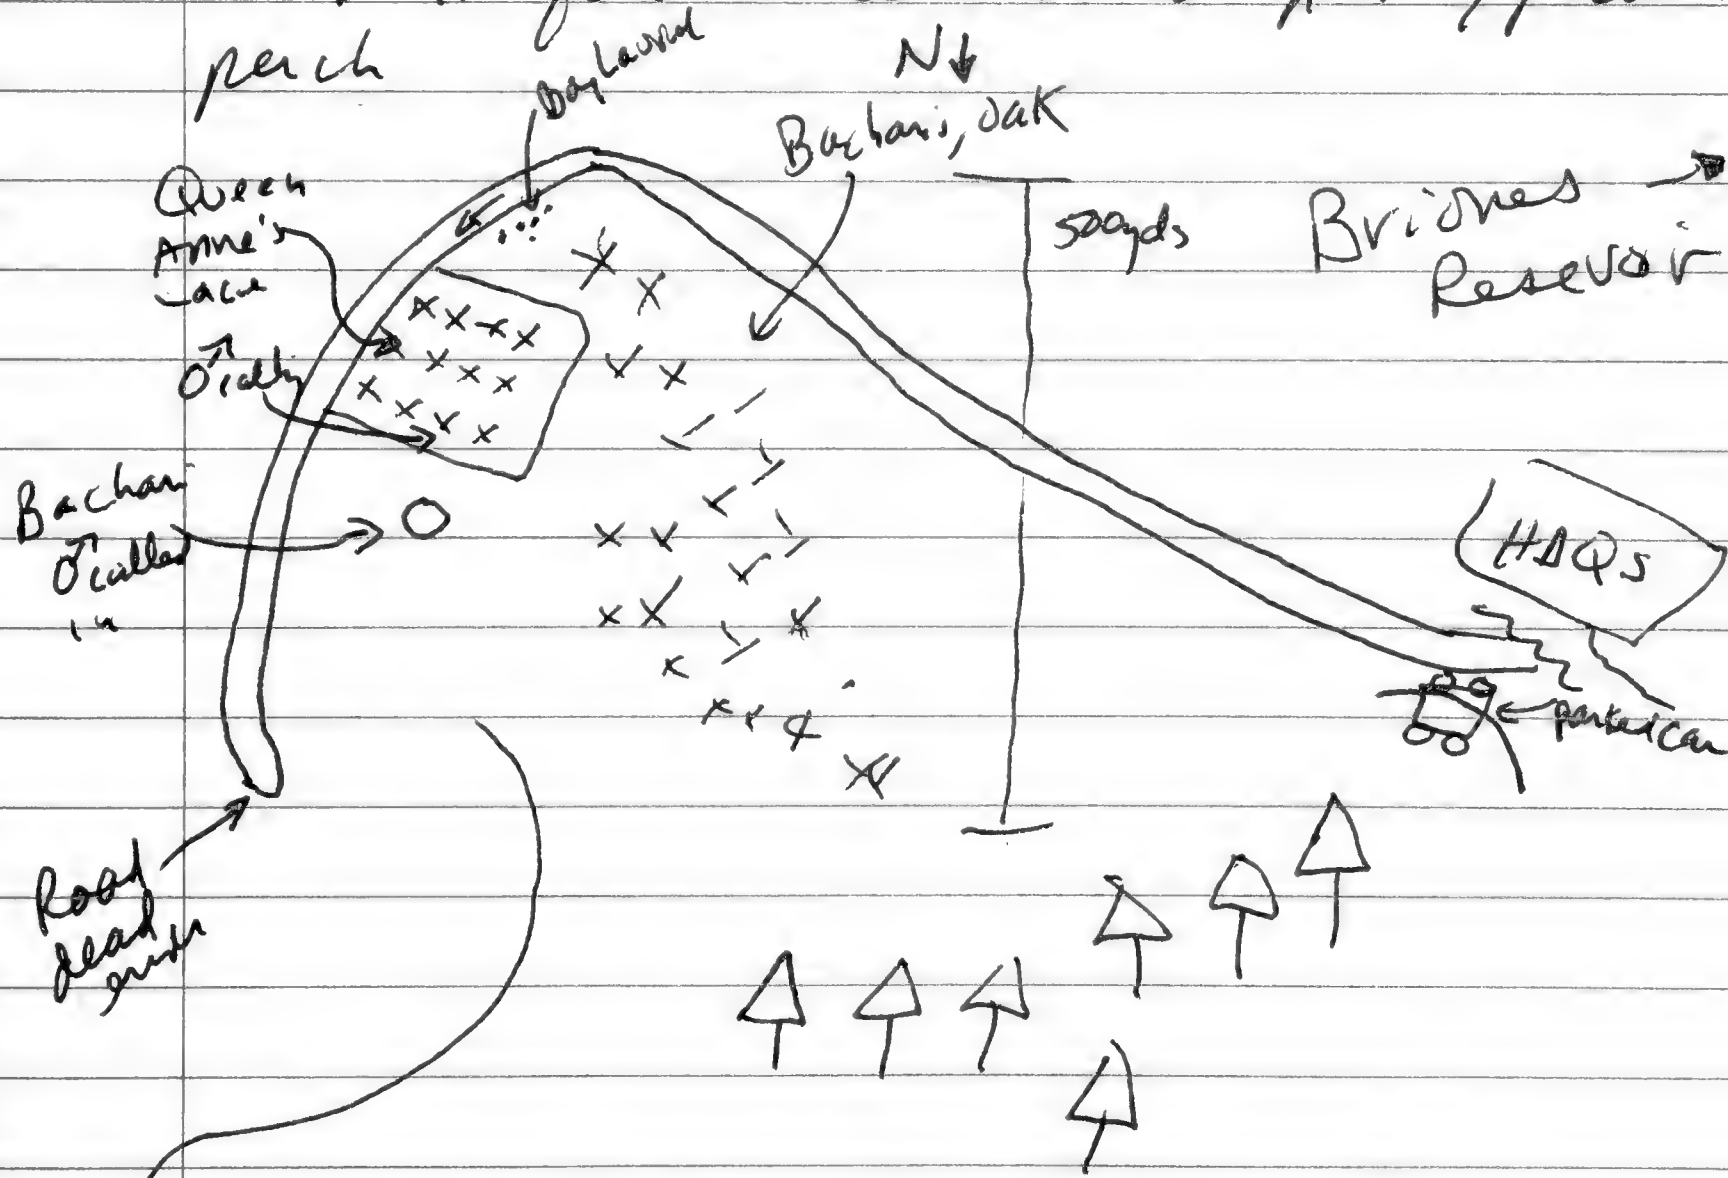 perch
Bay Laurel
N↓
Bacharis, oak
Queen
Anne's
Lace
500yds
Briones →
Reservoir
♂ calling
Bachari
♂ called
in
HDQs
parked car
Road
dead
ends